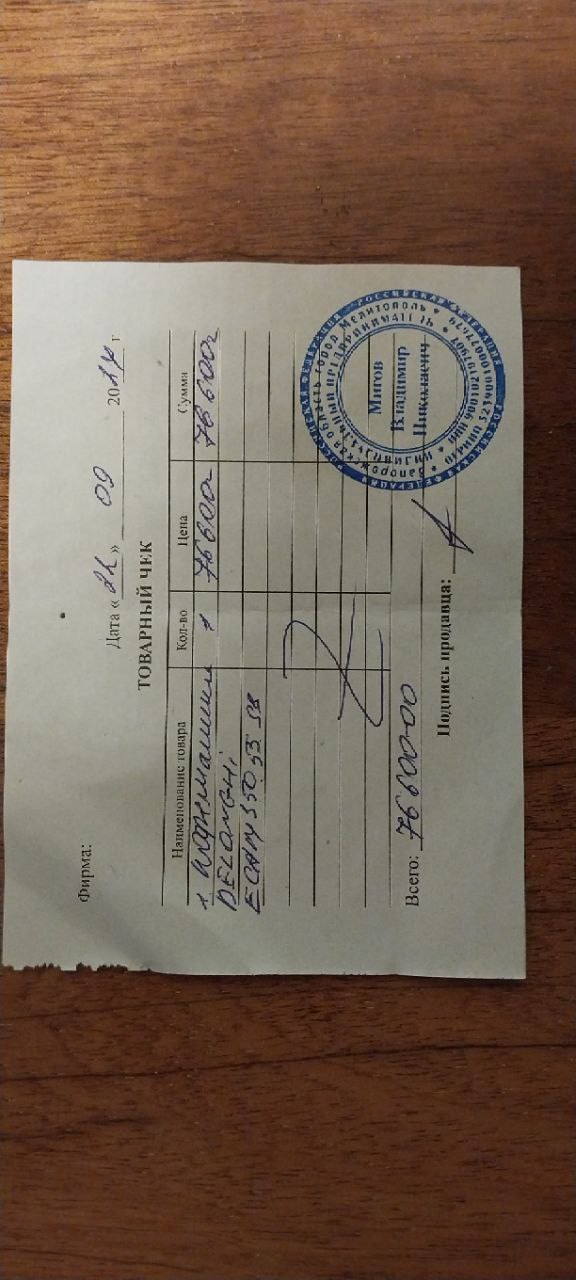 Фирма:
Дата « 22 » 09 2024 г
ТОВАРНЫЙ ЧЕК
Наименование товара Кол-во Цена Сумма
1 Кофемашина 1 76 600 76 600
DELONGHI
ECAM 550 55 SB
Всего: 76 600-00
Подпись продавца:
РОССИЙСКАЯ ФЕДЕРАЦИЯ
Запорожская область город Мелитополь
ИНДИВИДУАЛЬНЫЙ ПРЕДПРИНИМАТЕЛЬ
Владимир
Николаевич